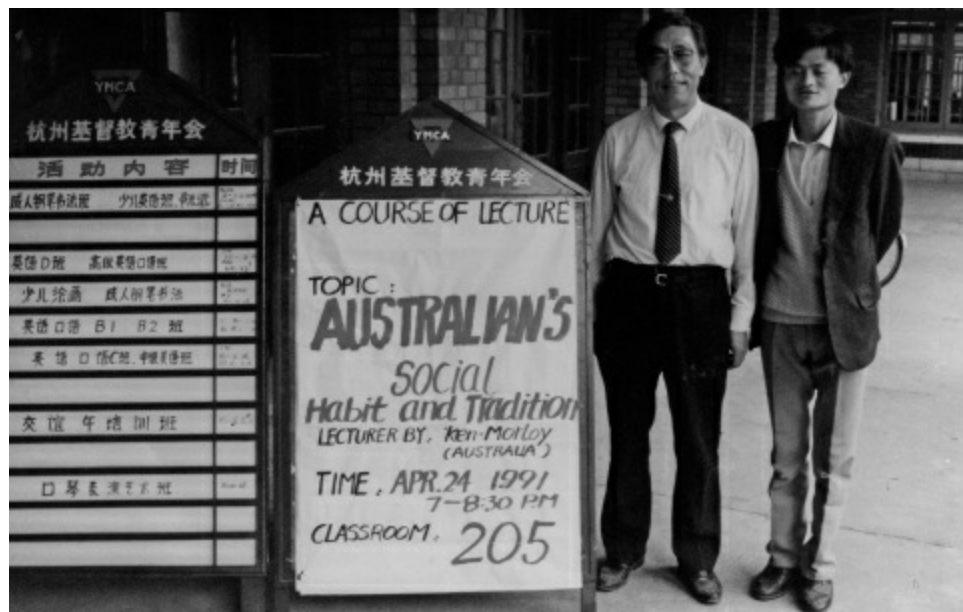 YMCA
杭州基督教青年会
活动内容 时间
成人钢笔书法班 少儿英语班、
英语D班 高级英语口语班
少儿绘画 成人钢笔书法
英语口语 B1 B2 班
英语口语C班、中级英语班
交谊 培训班
口琴表演艺术班
YMCA
杭州基督教青年会
A COURSE OF LECTURE
TOPIC:
AUSTRALIAN'S
SOCIAL
Habit and Tradition
LECTURER BY, Ken-Morloy
(AUSTRALIA)
TIME, APR.24 1991
7-8:30 P.M
CLASSROOM, 205